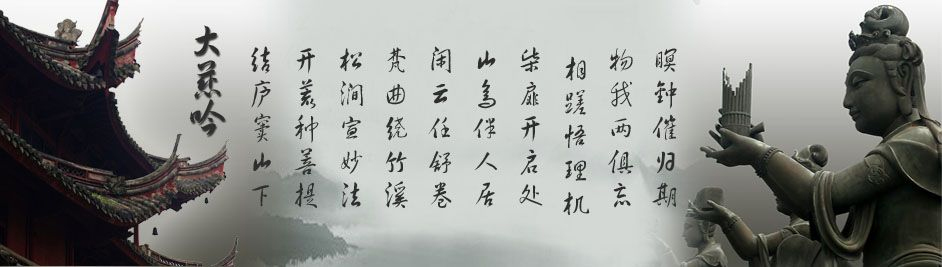 大慈吟
结庐窦山下
开荒种菩提
松涧宣妙法
梵曲绕竹溪
闲云任舒卷
山鸟伴人居
柴扉开启处
相蹉悟理机
物我两俱忘
暝钟催归期